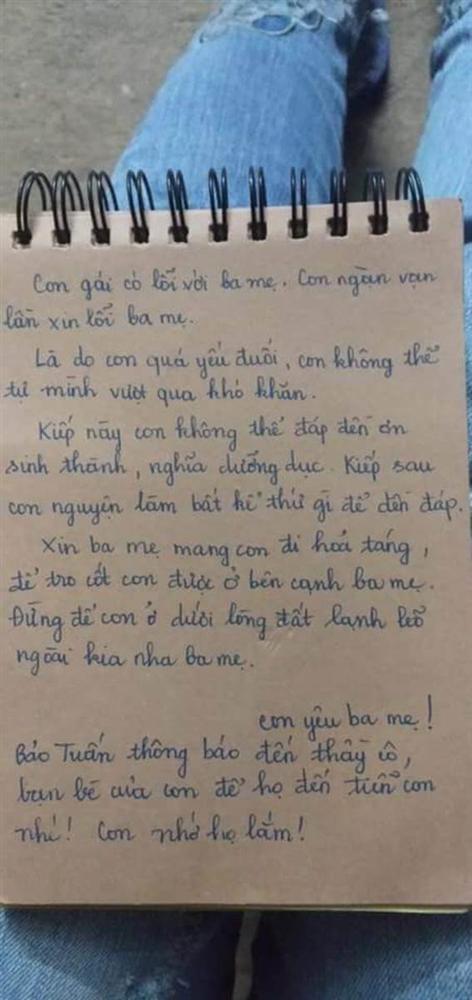 Con gái có lỗi với ba mẹ. Con ngàn vạn
lần xin lỗi ba mẹ.
Là do con quá yếu đuối, con không thể
tự mình vượt qua khó khăn.
Kiếp này con không thể đáp đền ơn
sinh thành, nghĩa dưỡng dục. Kiếp sau
con nguyện làm bất kì thứ gì để đền đáp.
Xin ba mẹ mang con đi hoả táng,
để tro cốt con được ở bên cạnh ba mẹ.
Đừng để con ở dưới lòng đất lạnh lẽo
ngoài kia nha ba mẹ.
con yêu ba mẹ!
Bảo Tuấn thông báo đến thầy cô,
bạn bè của con để họ đến tiễn con
nhé! Con nhớ họ lắm!